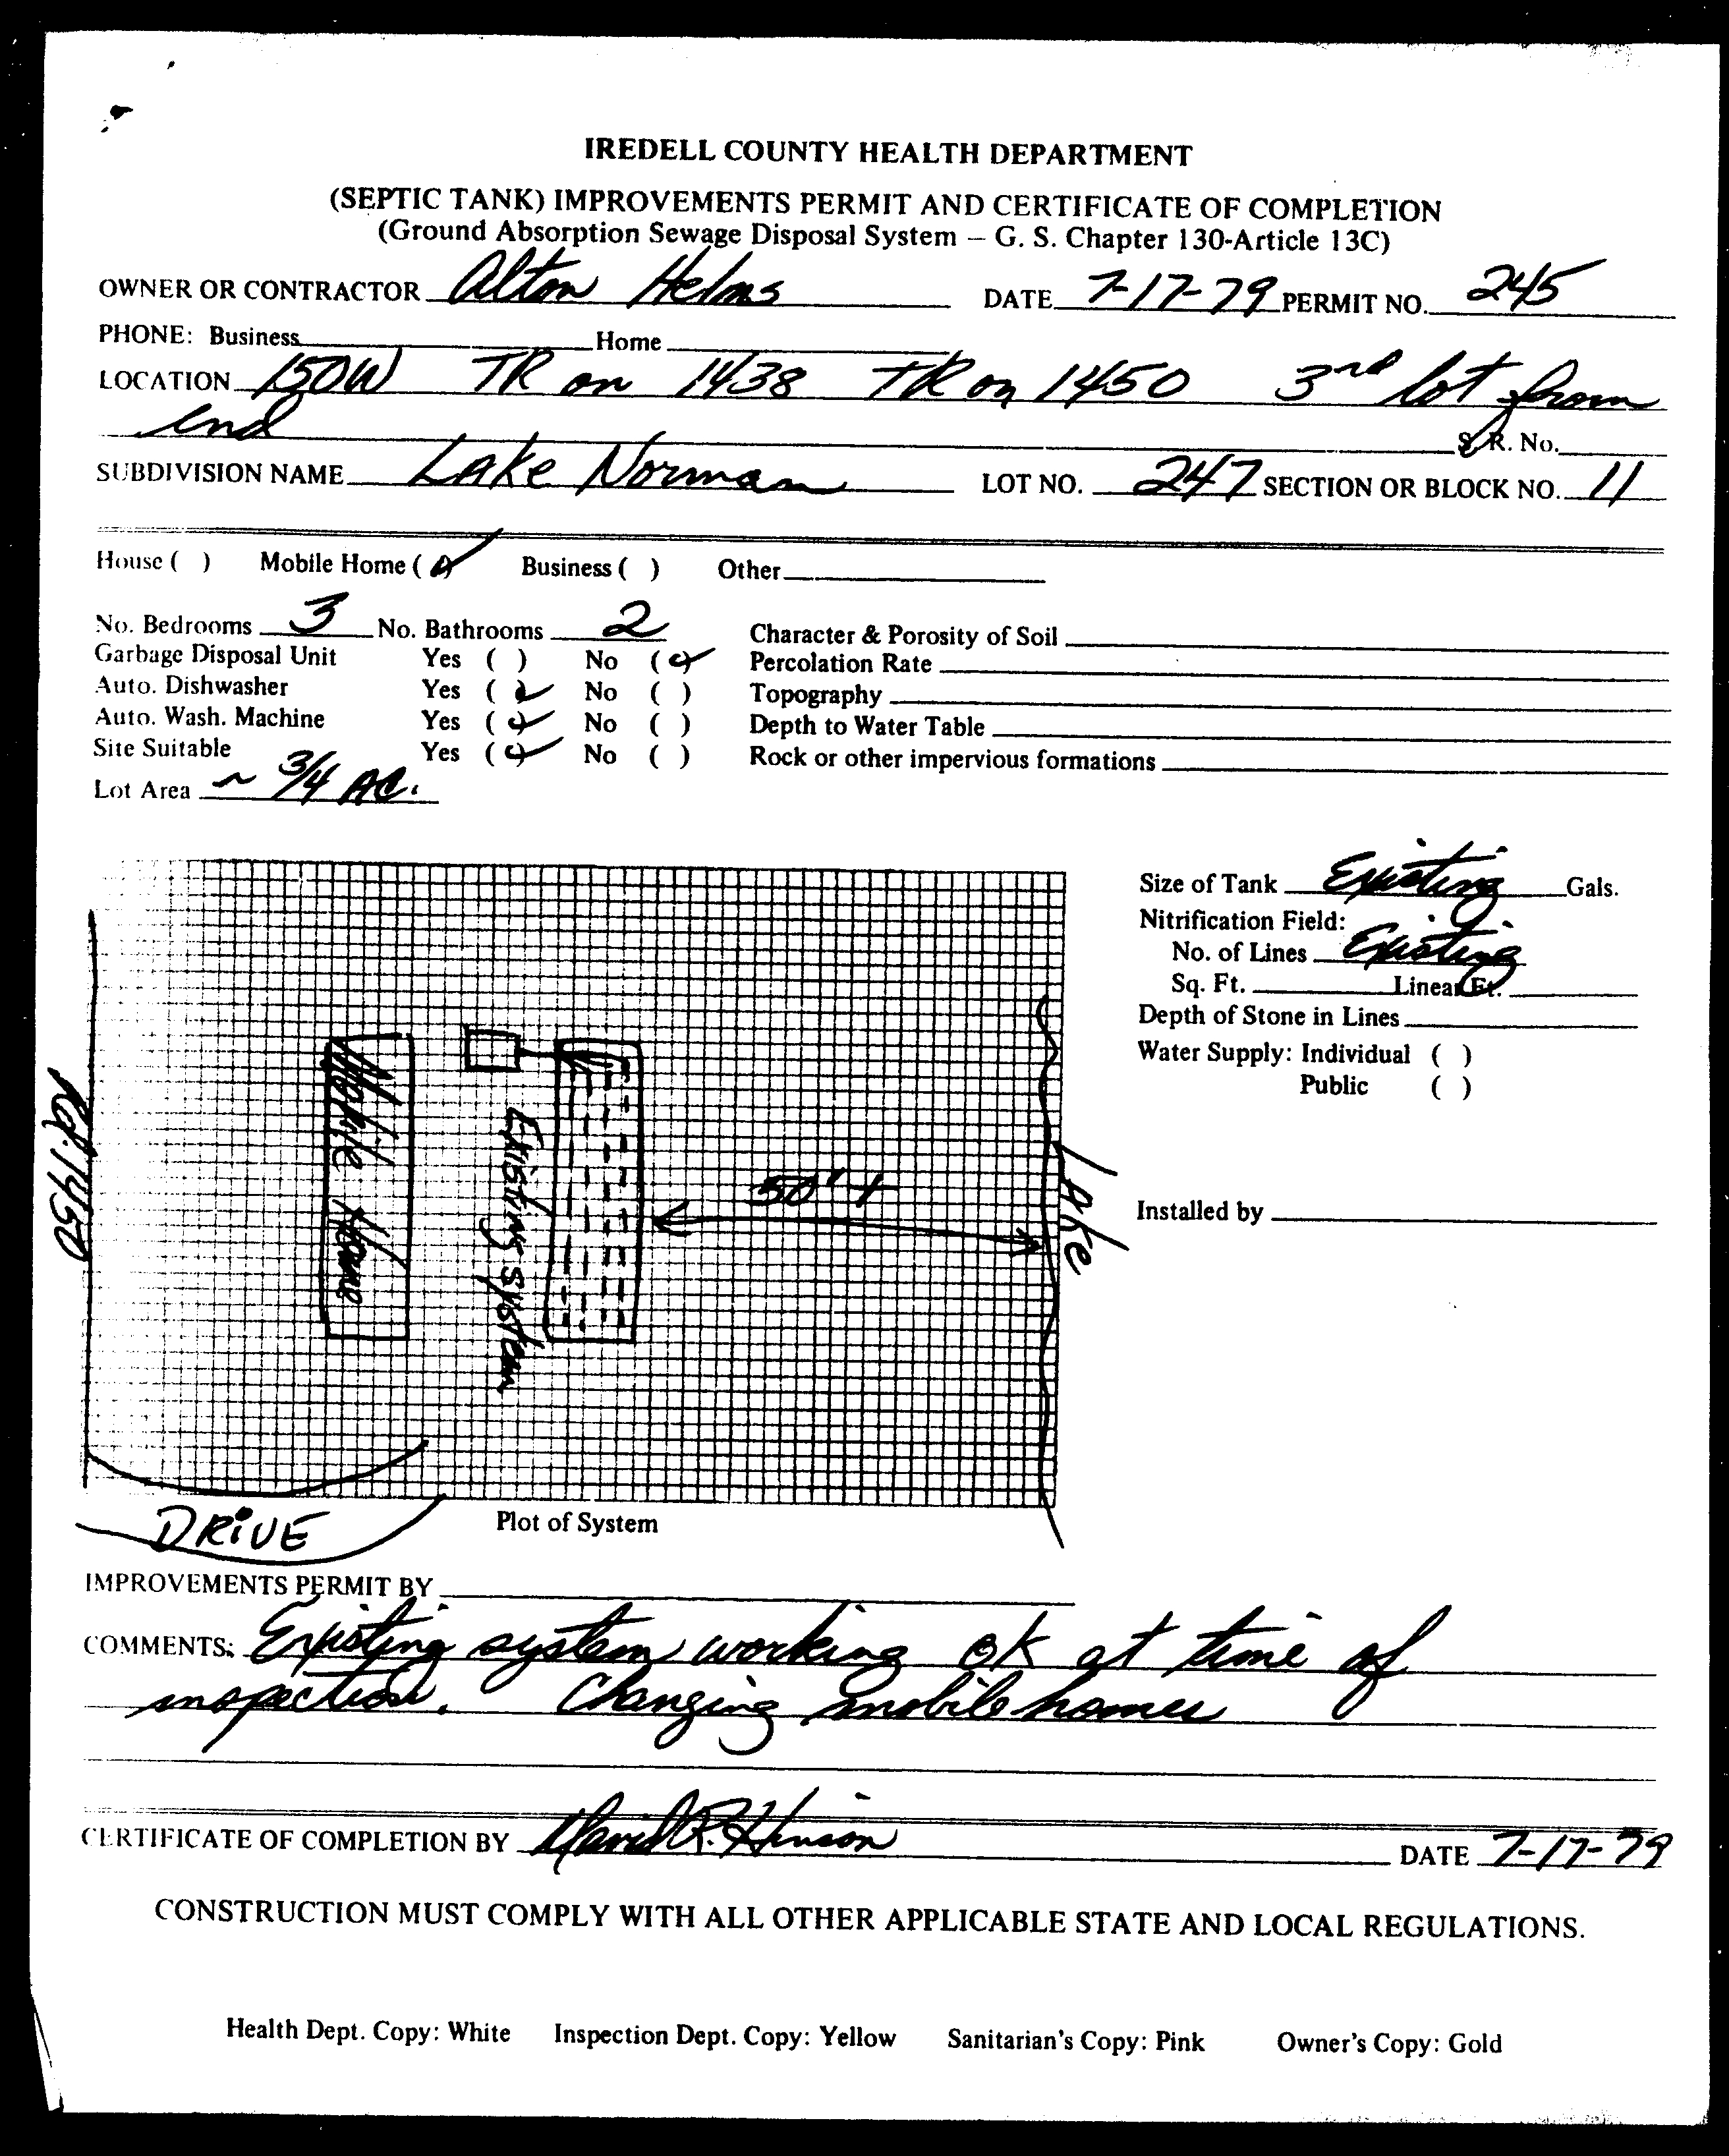 IREDELL COUNTY HEALTH DEPARTMENT
(SEPTIC TANK) IMPROVEMENTS PERMIT AND CERTIFICATE OF COMPLETION
(Ground Absorption Sewage Disposal System – G. S. Chapter 130-Article 13C)
OWNER OR CONTRACTOR Alton Helms DATE 7-17-79 PERMIT NO. 245
PHONE: Business Home
LOCATION 150W TR on 1438 TR on 1450 3rd lot from
end S.R. No.
SUBDIVISION NAME Lake Norman LOT NO. 247 SECTION OR BLOCK NO. 11
House ( ) Mobile Home (✓) Business ( ) Other
No. Bedrooms 3 No. Bathrooms 2 Character & Porosity of Soil
Garbage Disposal Unit Yes ( ) No (✓) Percolation Rate
Auto. Dishwasher Yes (✓) No ( ) Topography
Auto. Wash. Machine Yes (✓) No ( ) Depth to Water Table
Site Suitable Yes (✓) No ( ) Rock or other impervious formations
Lot Area ~ 3/4 AC.
Size of Tank Existing Gals.
Nitrification Field:
No. of Lines Existing
Sq. Ft. Linear Ft.
Depth of Stone in Lines
Water Supply: Individual ( )
Public ( )
Installed by
Rd. 1450
Mobile Home
Existing System
50' +
Lake
DRIVE
Plot of System
IMPROVEMENTS PERMIT BY
COMMENTS: Existing system working OK at time of
inspection. Changing mobile homes
CERTIFICATE OF COMPLETION BY David R. Hinson DATE 7-17-79
CONSTRUCTION MUST COMPLY WITH ALL OTHER APPLICABLE STATE AND LOCAL REGULATIONS.
Health Dept. Copy: White Inspection Dept. Copy: Yellow Sanitarian's Copy: Pink Owner's Copy: Gold